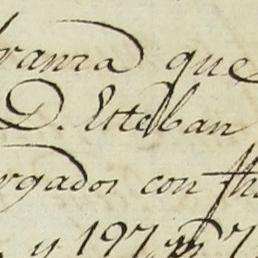 branza que
D. Esteban
rgados con
y 197